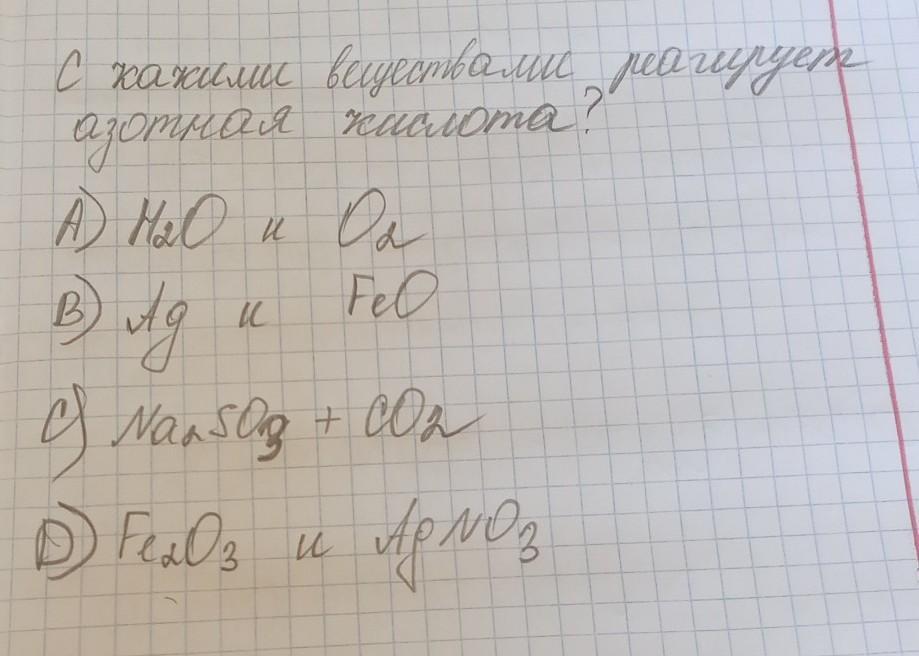 С какими веществами реагирует
азотная кислота?
A) H2O и O2
B) Ag и FeO
C) Na2SO3 + CO2
D) Fe2O3 и AgNO3